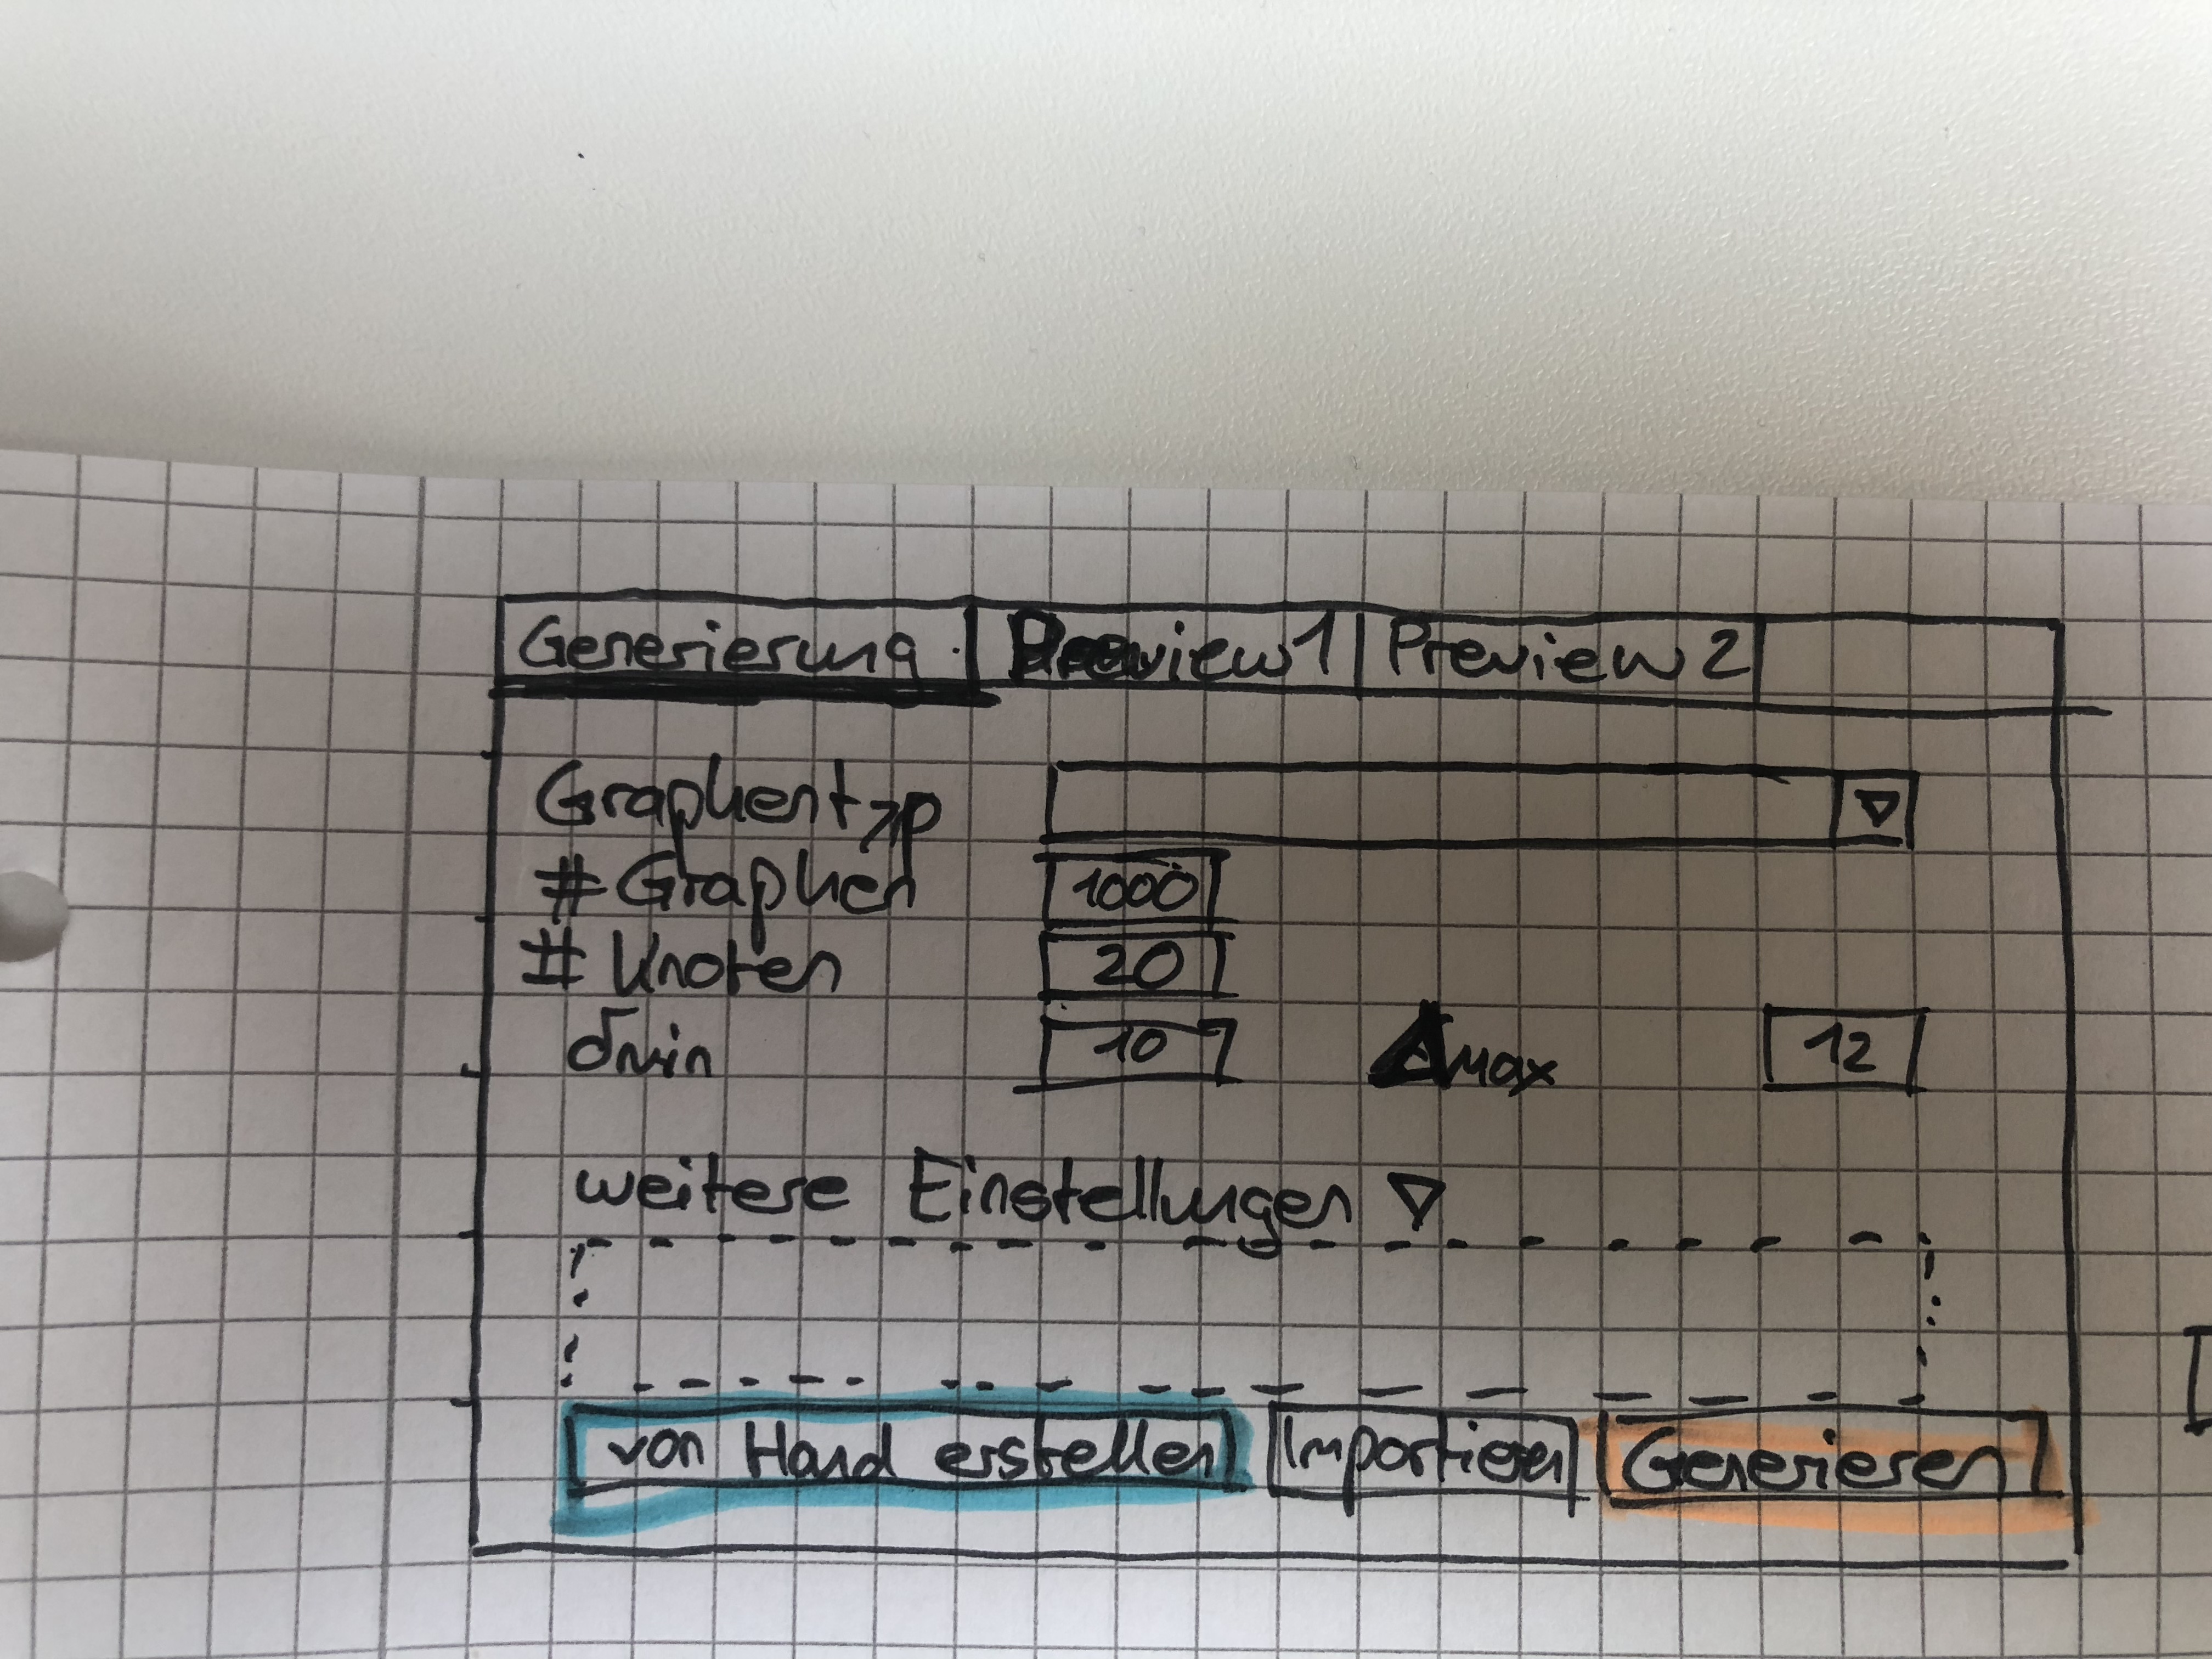 Generierung Preview 1 Preview 2
Graphentyp
# Graphen 1000
# Knoten 20
δmin 10 Δmax 12
weitere Einstellungen ▽
von Hand erstellen Importieren Generieren